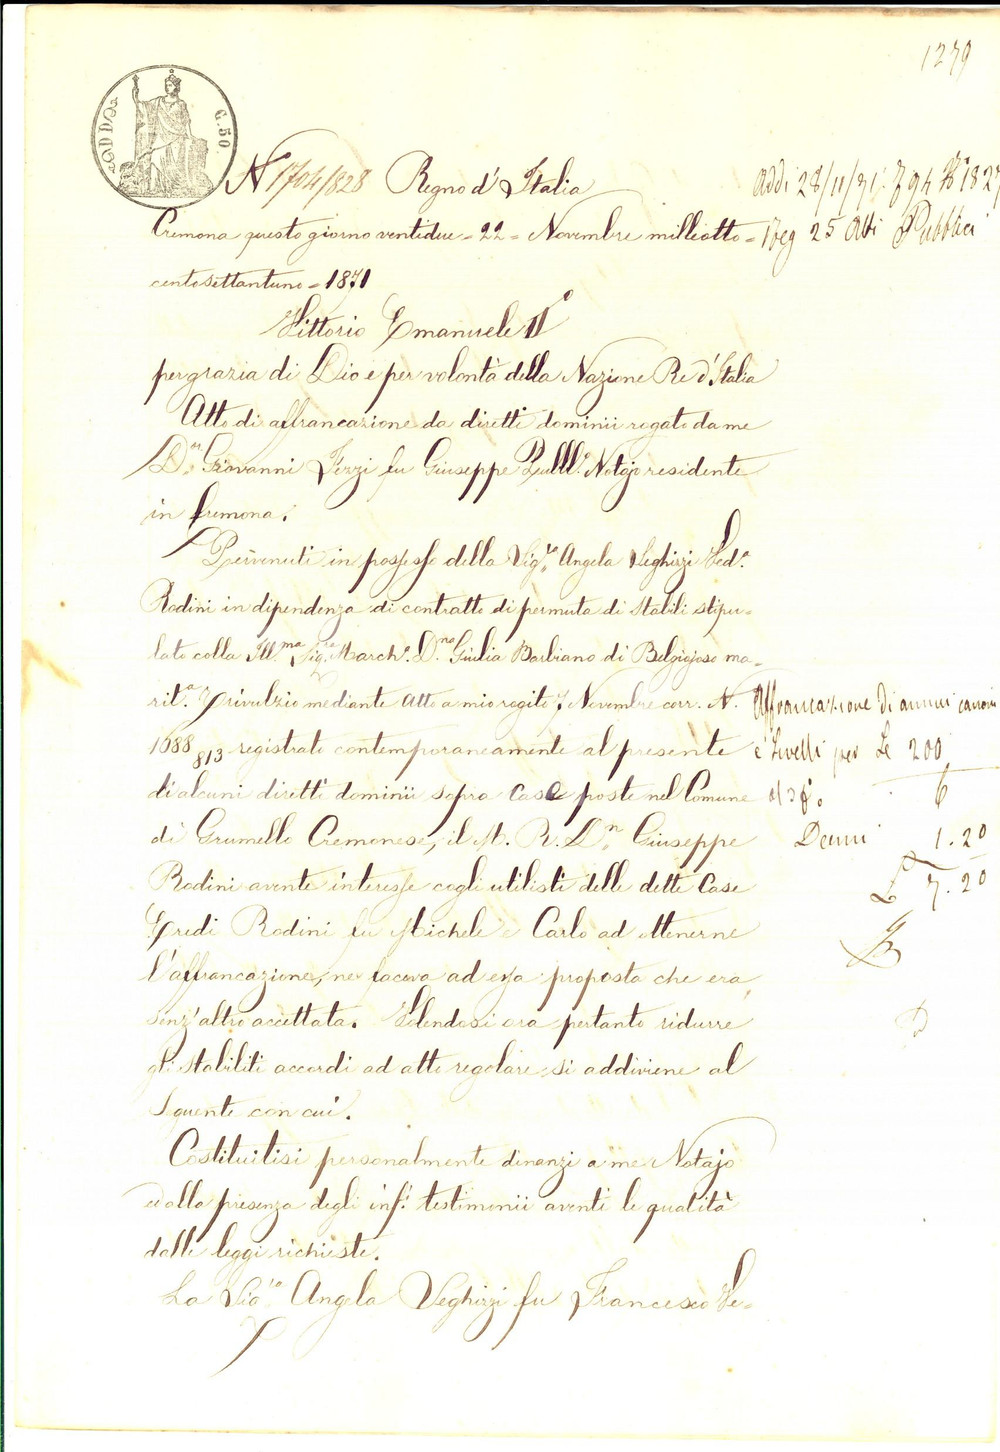 1279
C. 50
N° 1704/828 Regno d'Italia
Cremona questo giorno ventidue = 22 = Novembre milleotto=
centosettantuno = 1871
Vittorio Emanuele II°
per grazia di Dio e per volontà della Nazione Re d'Italia
Atto di affrancazione da diretti dominii rogato da me
D.r Giovanni Tezzi fu Giuseppe Pubbl.° Notajo residente
in Cremona.
Pervenuti in possesso della Sig.ra Angela Veghizzi Ved.a
Rodini in dipendenza di contratto di permuta di Stabili stipu=
lato colla Ill.ma Sig.ra March.a D.na Giulia Barbiano di Belgiojoso ma=
rit.a Trivulzio mediante Atto a mio rogito 7 Novembre corr. N.
1688/813 registrato contemporaneamente al presente
di alcuni diretti dominii sopra Case poste nel Comune
di Grumello Cremonese, il M. R. D.n Giuseppe
Rodini avente interesse cogli utilisti delle dette Case
Eredi Rodini fu Michele e Carlo ad ottenerne
l'affrancazione, ne faceva ad essa proposta che era
senz'altro accettata. Volendosi ora pertanto ridurre
gli stabiliti accordi ad atto regolare si addiviene al
seguente con cui.
Costituitisi personalmente dinanzi a me Notajo
ed alla presenza degli inf.i testimonii aventi le qualità
dalle leggi richieste.
La Sig.ra Angela Veghizzi fu Francesco Ve=
Addì 28/11/71 f 94 N° 1827
Reg 25 Atti Pubblici
Affrancazione di annui canoni
e livelli per Le 200
6
Decimi 1.20
L 7.20